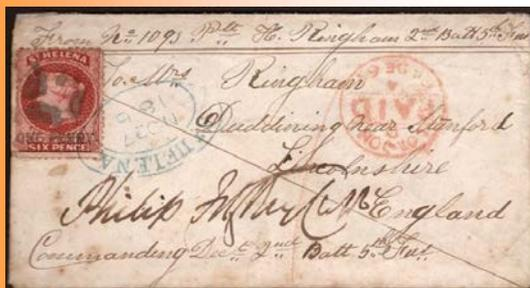 From No 1093 Pte H. Ringham 2nd Batt 5th Fus
ST HELENA
ONE PENNY
SIX PENCE
To Mrs Ringham
HELENA
PAID
Duddining near Stamford
Lincolnshire
England
Philip
Commanding Dect 2nd Batt 5th Fus